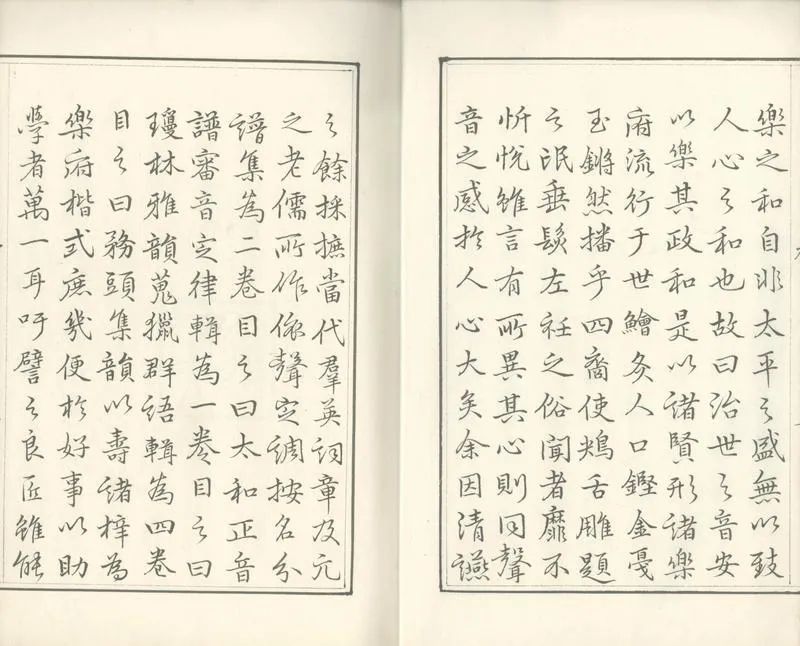 樂之和自非太平之盛無以致
人心之和也故曰治世之音安
以樂其政和是以諸賢形諸樂
府流行于世鱠炙人口鏗金戞
玉鏘然播乎四裔使鴂舌雕題
之氓垂髮左袵之俗聞者靡不
忻悅雖言有所異其心則同聲
音之感於人心大矣余因清讌
之餘採摭當代羣英詞章及元
之老儒所作依聲定調按名分
譜集為二卷目之曰太和正音
譜審音定律輯為一卷目之曰
瓊林雅韻蒐獵群語輯為四卷
目之曰務頭集韻以壽諸梓為
樂府楷式庶幾便於好事以助
學者萬一耳吁譬之良匠雖能